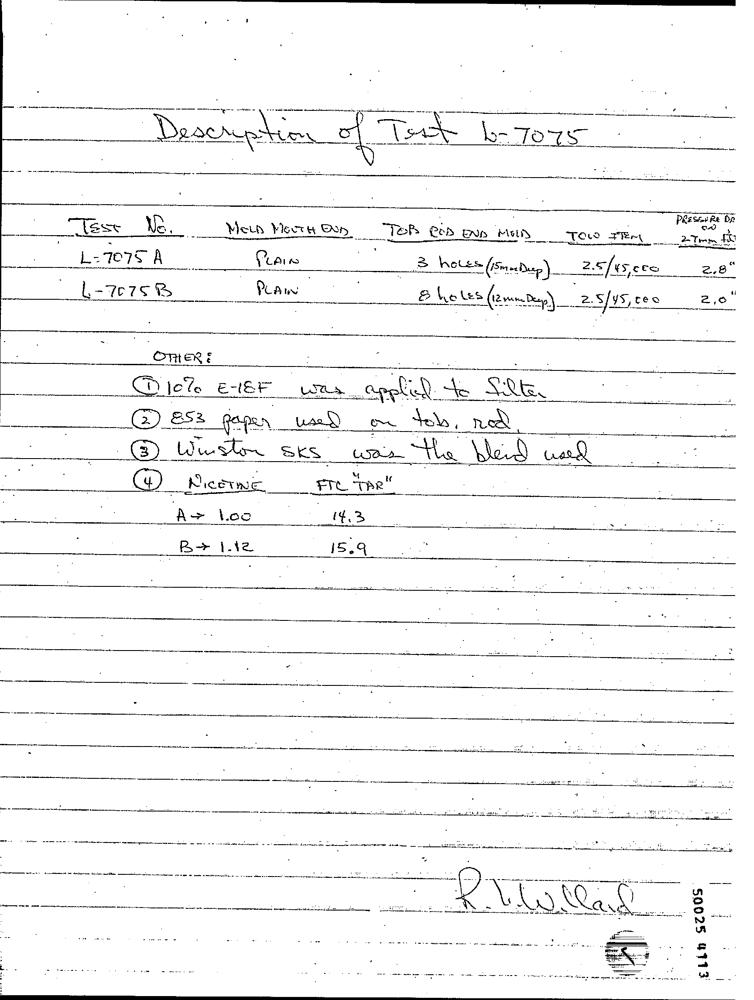 Description of Test L-7075
PRESSURE DR
ON
TEST No. MOLD MOUTH END TOB ROD END MOLD TOW ITEM 27mm
L-7075 A PLAIN 3 holes (15mm Deep) 2.5/45,000 2.8"
L-7075 B PLAIN 8 holes (12mm Deep) 2.5/45,000 2.0"
OTHER:
① 10% E-18F was applied to filter
② 853 paper used on tob. rod.
③ Winston SKS was the blend used
④ NICOTINE FTC "TAR"
A → 1.00 14.3
B → 1.12 15.9
R. L. Willard
50025 4113